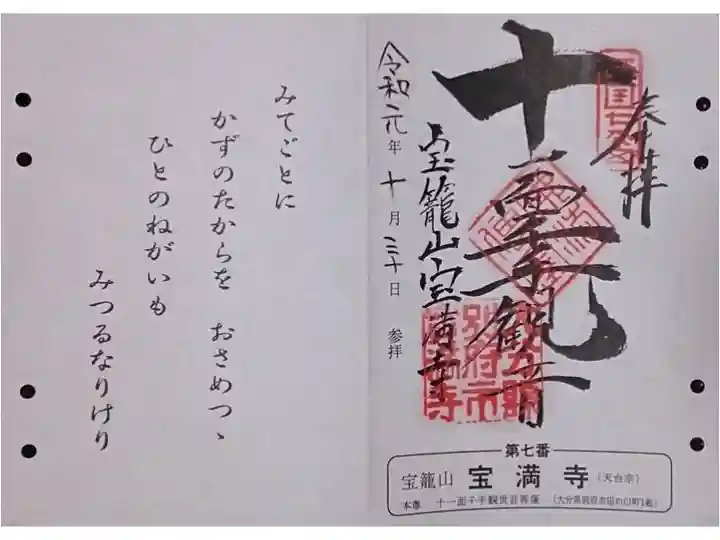 奉拝
十一面千手観音
宝籠山宝満寺
令和元年十月三十日 参拝
第七番
宝籠山 宝満寺 (天台宗)
本尊 十一面千手観世音菩薩
みてごとに
かずのたからを おさめつゝ
ひとのねがいも
みつるなりけり